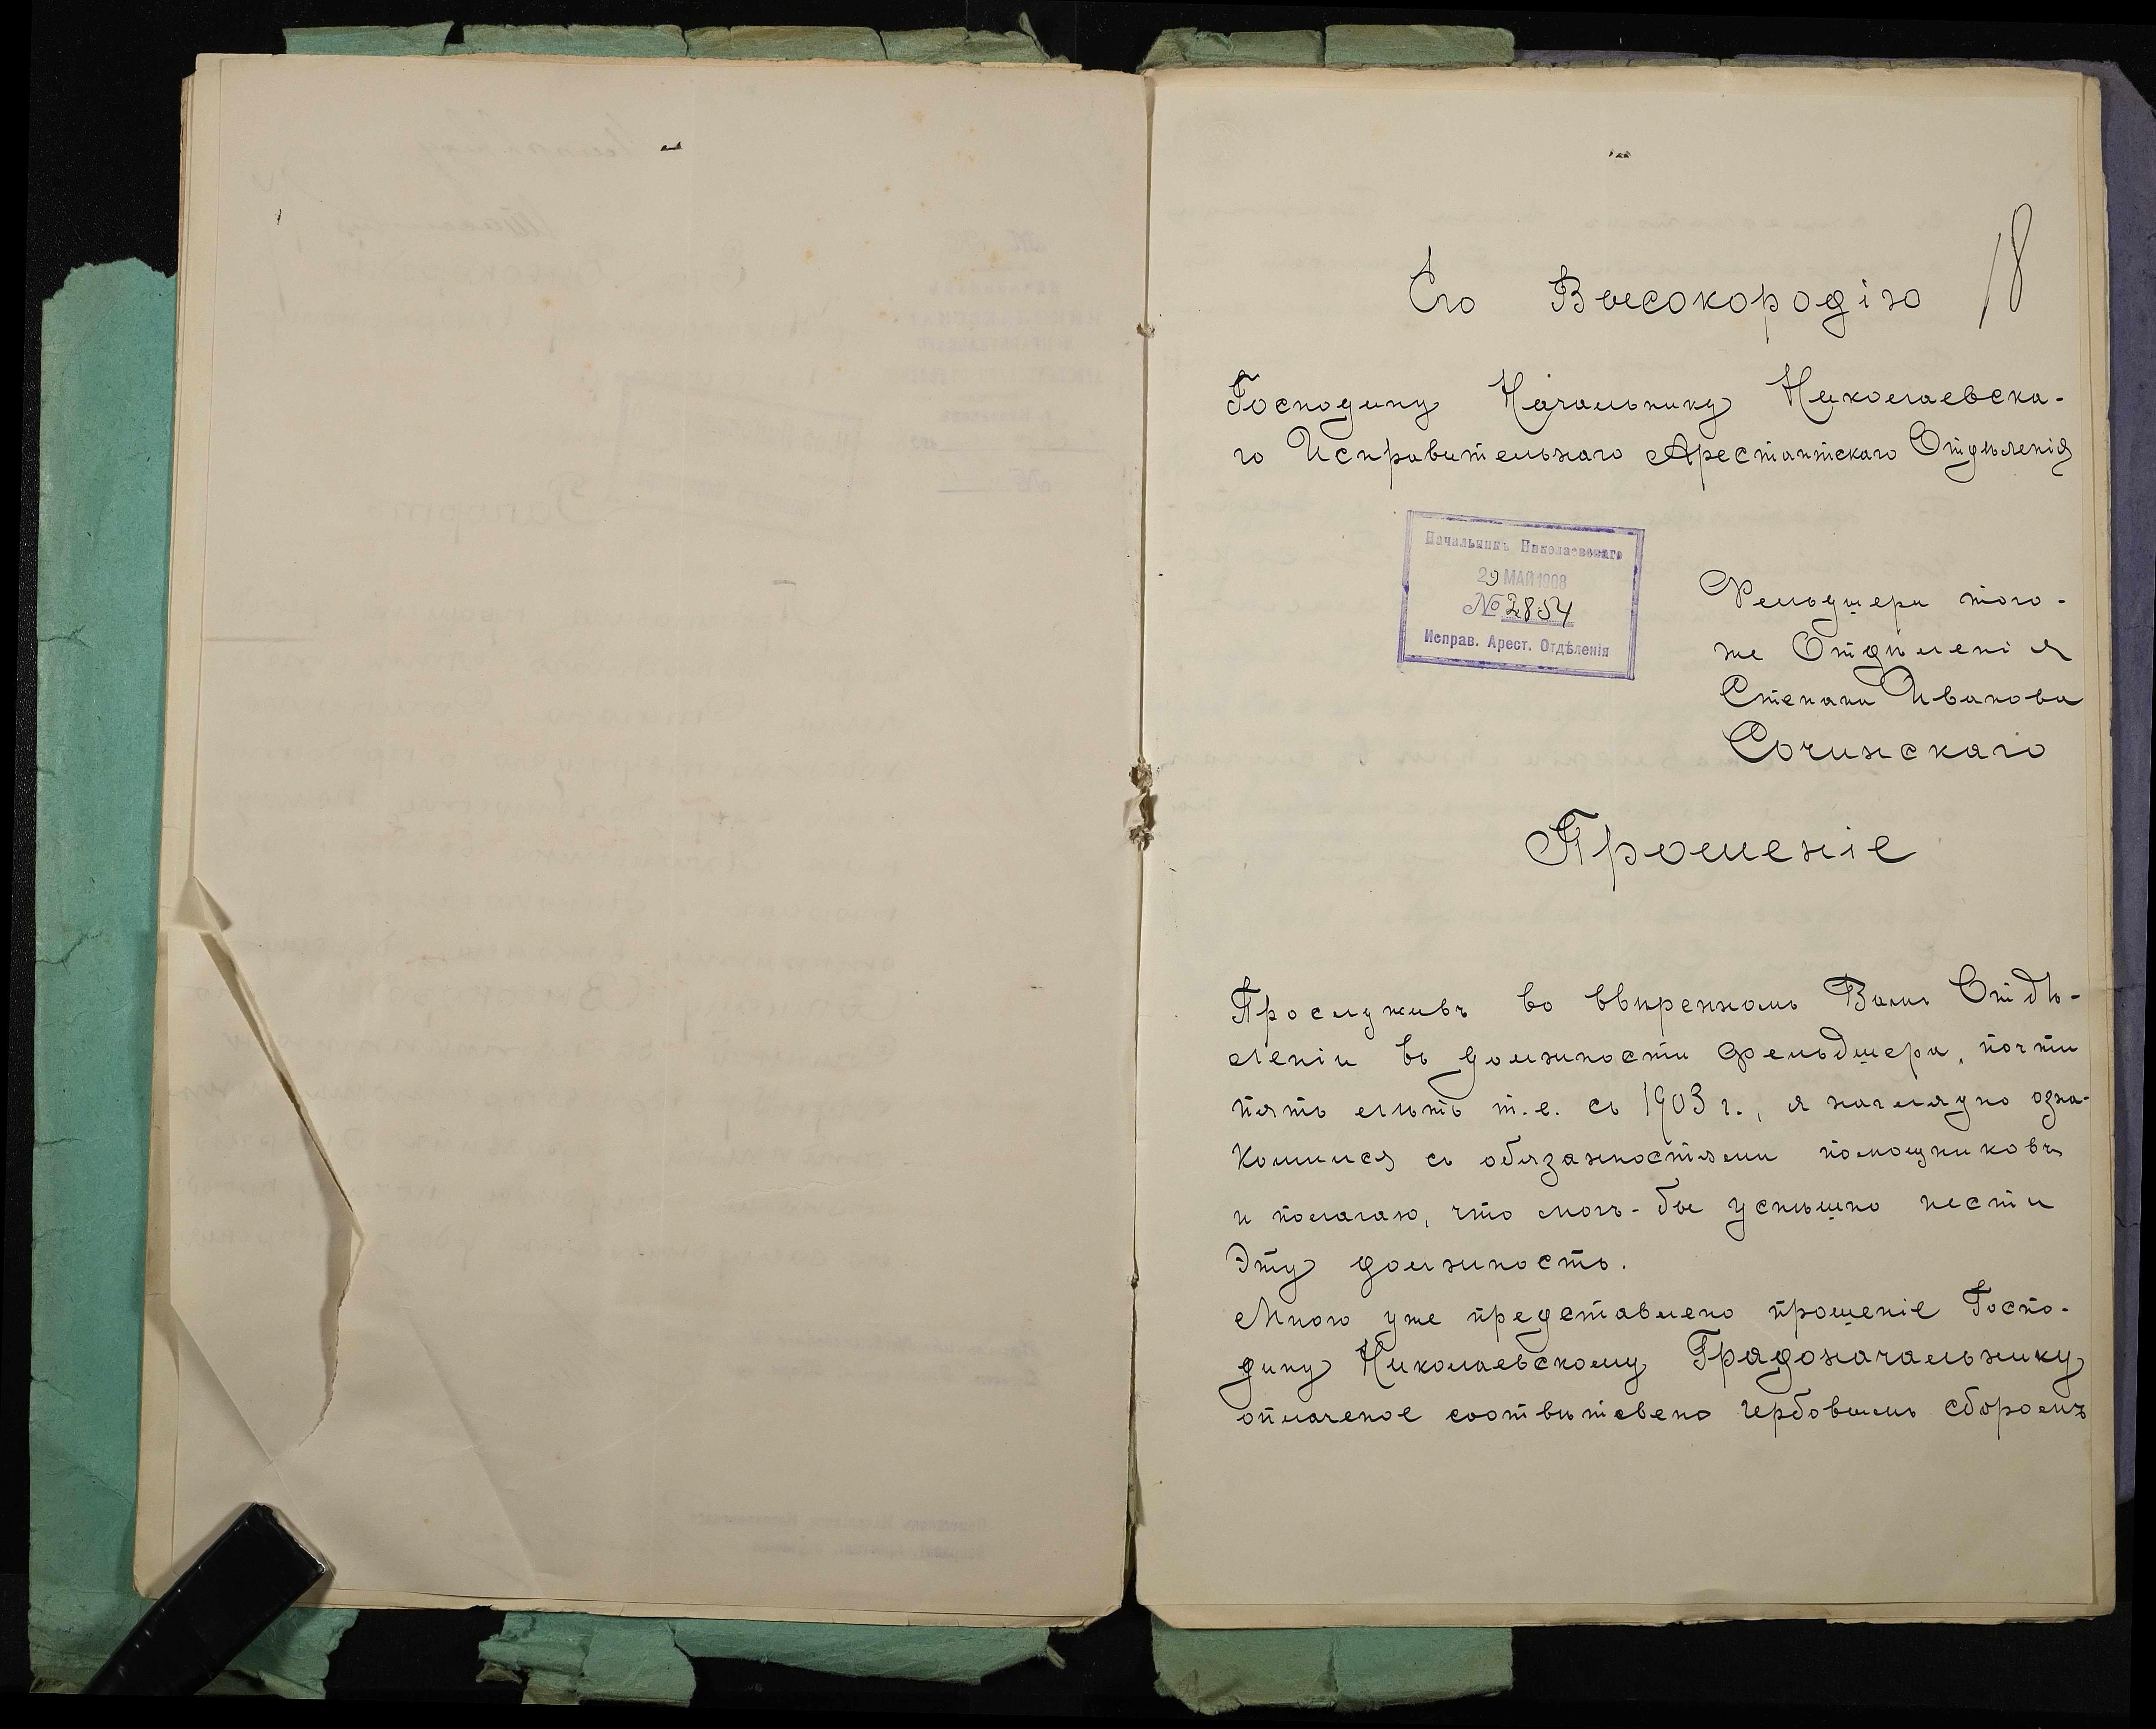 18
Его Высокородію
Господину Начальнику Николаевска-
го Исправительнаго Арестантскаго Отдѣленія
Начальникъ Николаевскаго
29 МАЙ 1908
№ 2854
Исправ. Арест. Отдѣленія
Фельдшера того-
же Отдѣленія
Степана Иванова
Сочинскаго
Прошеніе
Прослуживъ во ввѣренномъ Вамъ Отдѣ-
леніи въ должности фельдшера, почти
пять лѣтъ т.е. съ 1903 г., я наглядно озна-
комился съ обязанностями помощниковъ
и полагаю, что могъ-бы успѣшно нести
эту должность.
Мною уже представлено прошеніе Госпо-
дину Николаевскому Градоначальнику
оплаченое соотвѣтсвено гербовымъ сборомъ